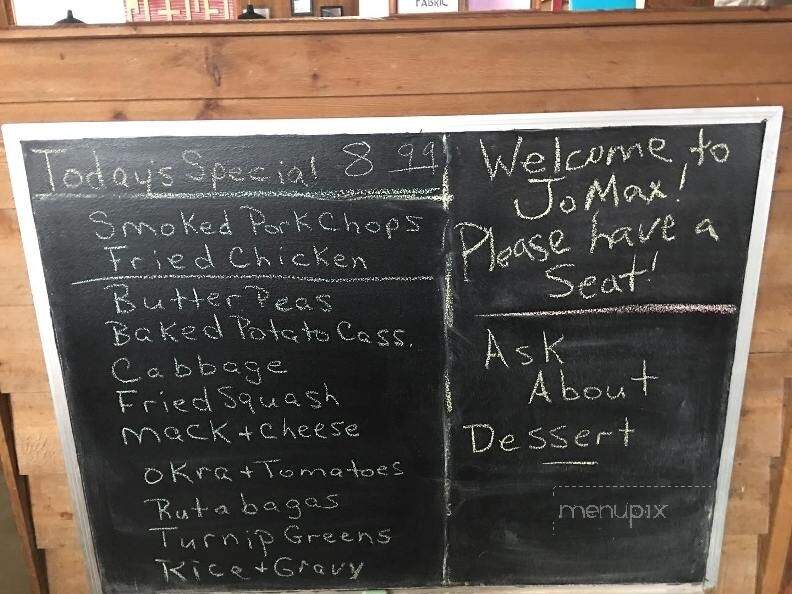 FABRIC
Today's Special 8 99
Smoked Pork Chops
Fried Chicken
Butter Peas
Baked Potato Cass.
Cabbage
Fried Squash
Mack + Cheese
Okra + Tomatoes
Rutabagas
Turnip Greens
Rice + Gravy
Welcome to
JoMax!
Please have a
Seat!
Ask
About
Dessert
menupix